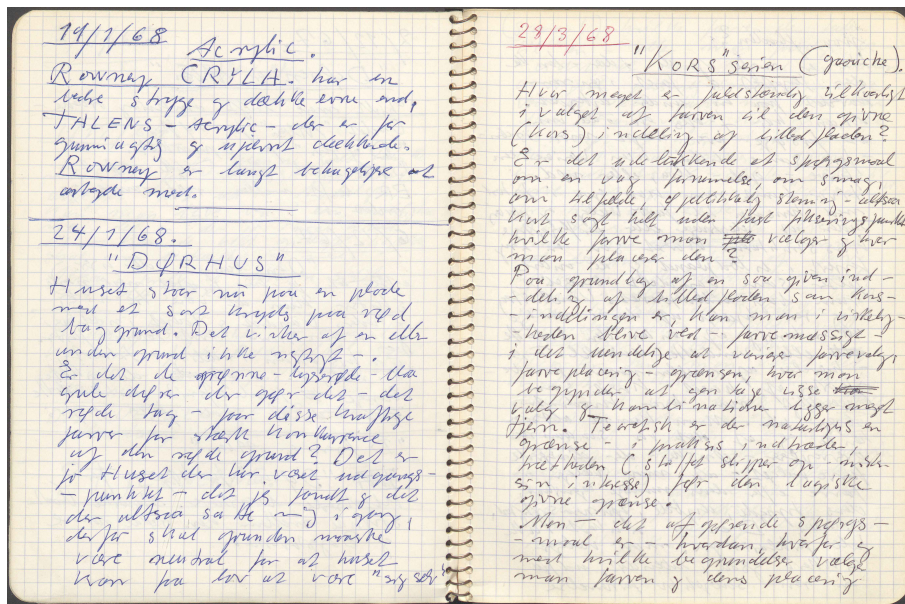 19/1/68
Acrylic.
Rowney CRYLA. har en
bedre stryge og dække evne end,
TALENS – Acrylic – der er for
gummiagtig og ujævnt dækkende.
Rowney er langt behageligere at
arbejde med.
24/1/68.
"DØRHUS"
Huset staar nu paa en plade
med et sort kryds paa rød
baggrund. Det virker af en eller
anden grund ikke rigtigt –.
Er det de grønne – lyserøde – og
gule døre der gør det – det
røde tag – faar disse kraftige
farver for stærk konkurrence
af den røde grund? Det er
jo Huset der har været udgangs-
-punktet – det jeg fandt og det
der altsaa satte mig igang,
derfor skal grunden maaske
være neutral for at huset
kan faa lov at være "sig selv"
28/3/68
"KORS" serien (gouache).
Hvor meget er fuldstændig tilfældigt
i valget af farven til den givne
(Kors) inddeling af billedfladen?
Er det udelukkende et spørgsmaal
om en vag fornemmelse, om smag,
om tilfælde, øjeblikkelig stemning – altsaa
kort sagt helt uden fast
hvilke farve man vælger og hvor
man placerer den?
Paa grundlag af en saa given ind-
-deling af billedfladen som Kors-
-inddelingen er, kan man i virkelig-
-heden blive ved – farvemæssigt –
i det uendelige at variere farvevalg,
farveplacering – grænsen, hvor man
begynder at gentage disse
valg og kombinationer ligger meget
fjern. Teoretisk er der naturligvis en
grænse – i praksis indtræder,
trætheden (stoffet slipper op – mister
sin interesse) før den logiske
givne grænse.
Men – det afgørende spørgs-
-maal er – hvordan, hvorfor og
med hvilke begrundelser vælger
man farven og dens placering